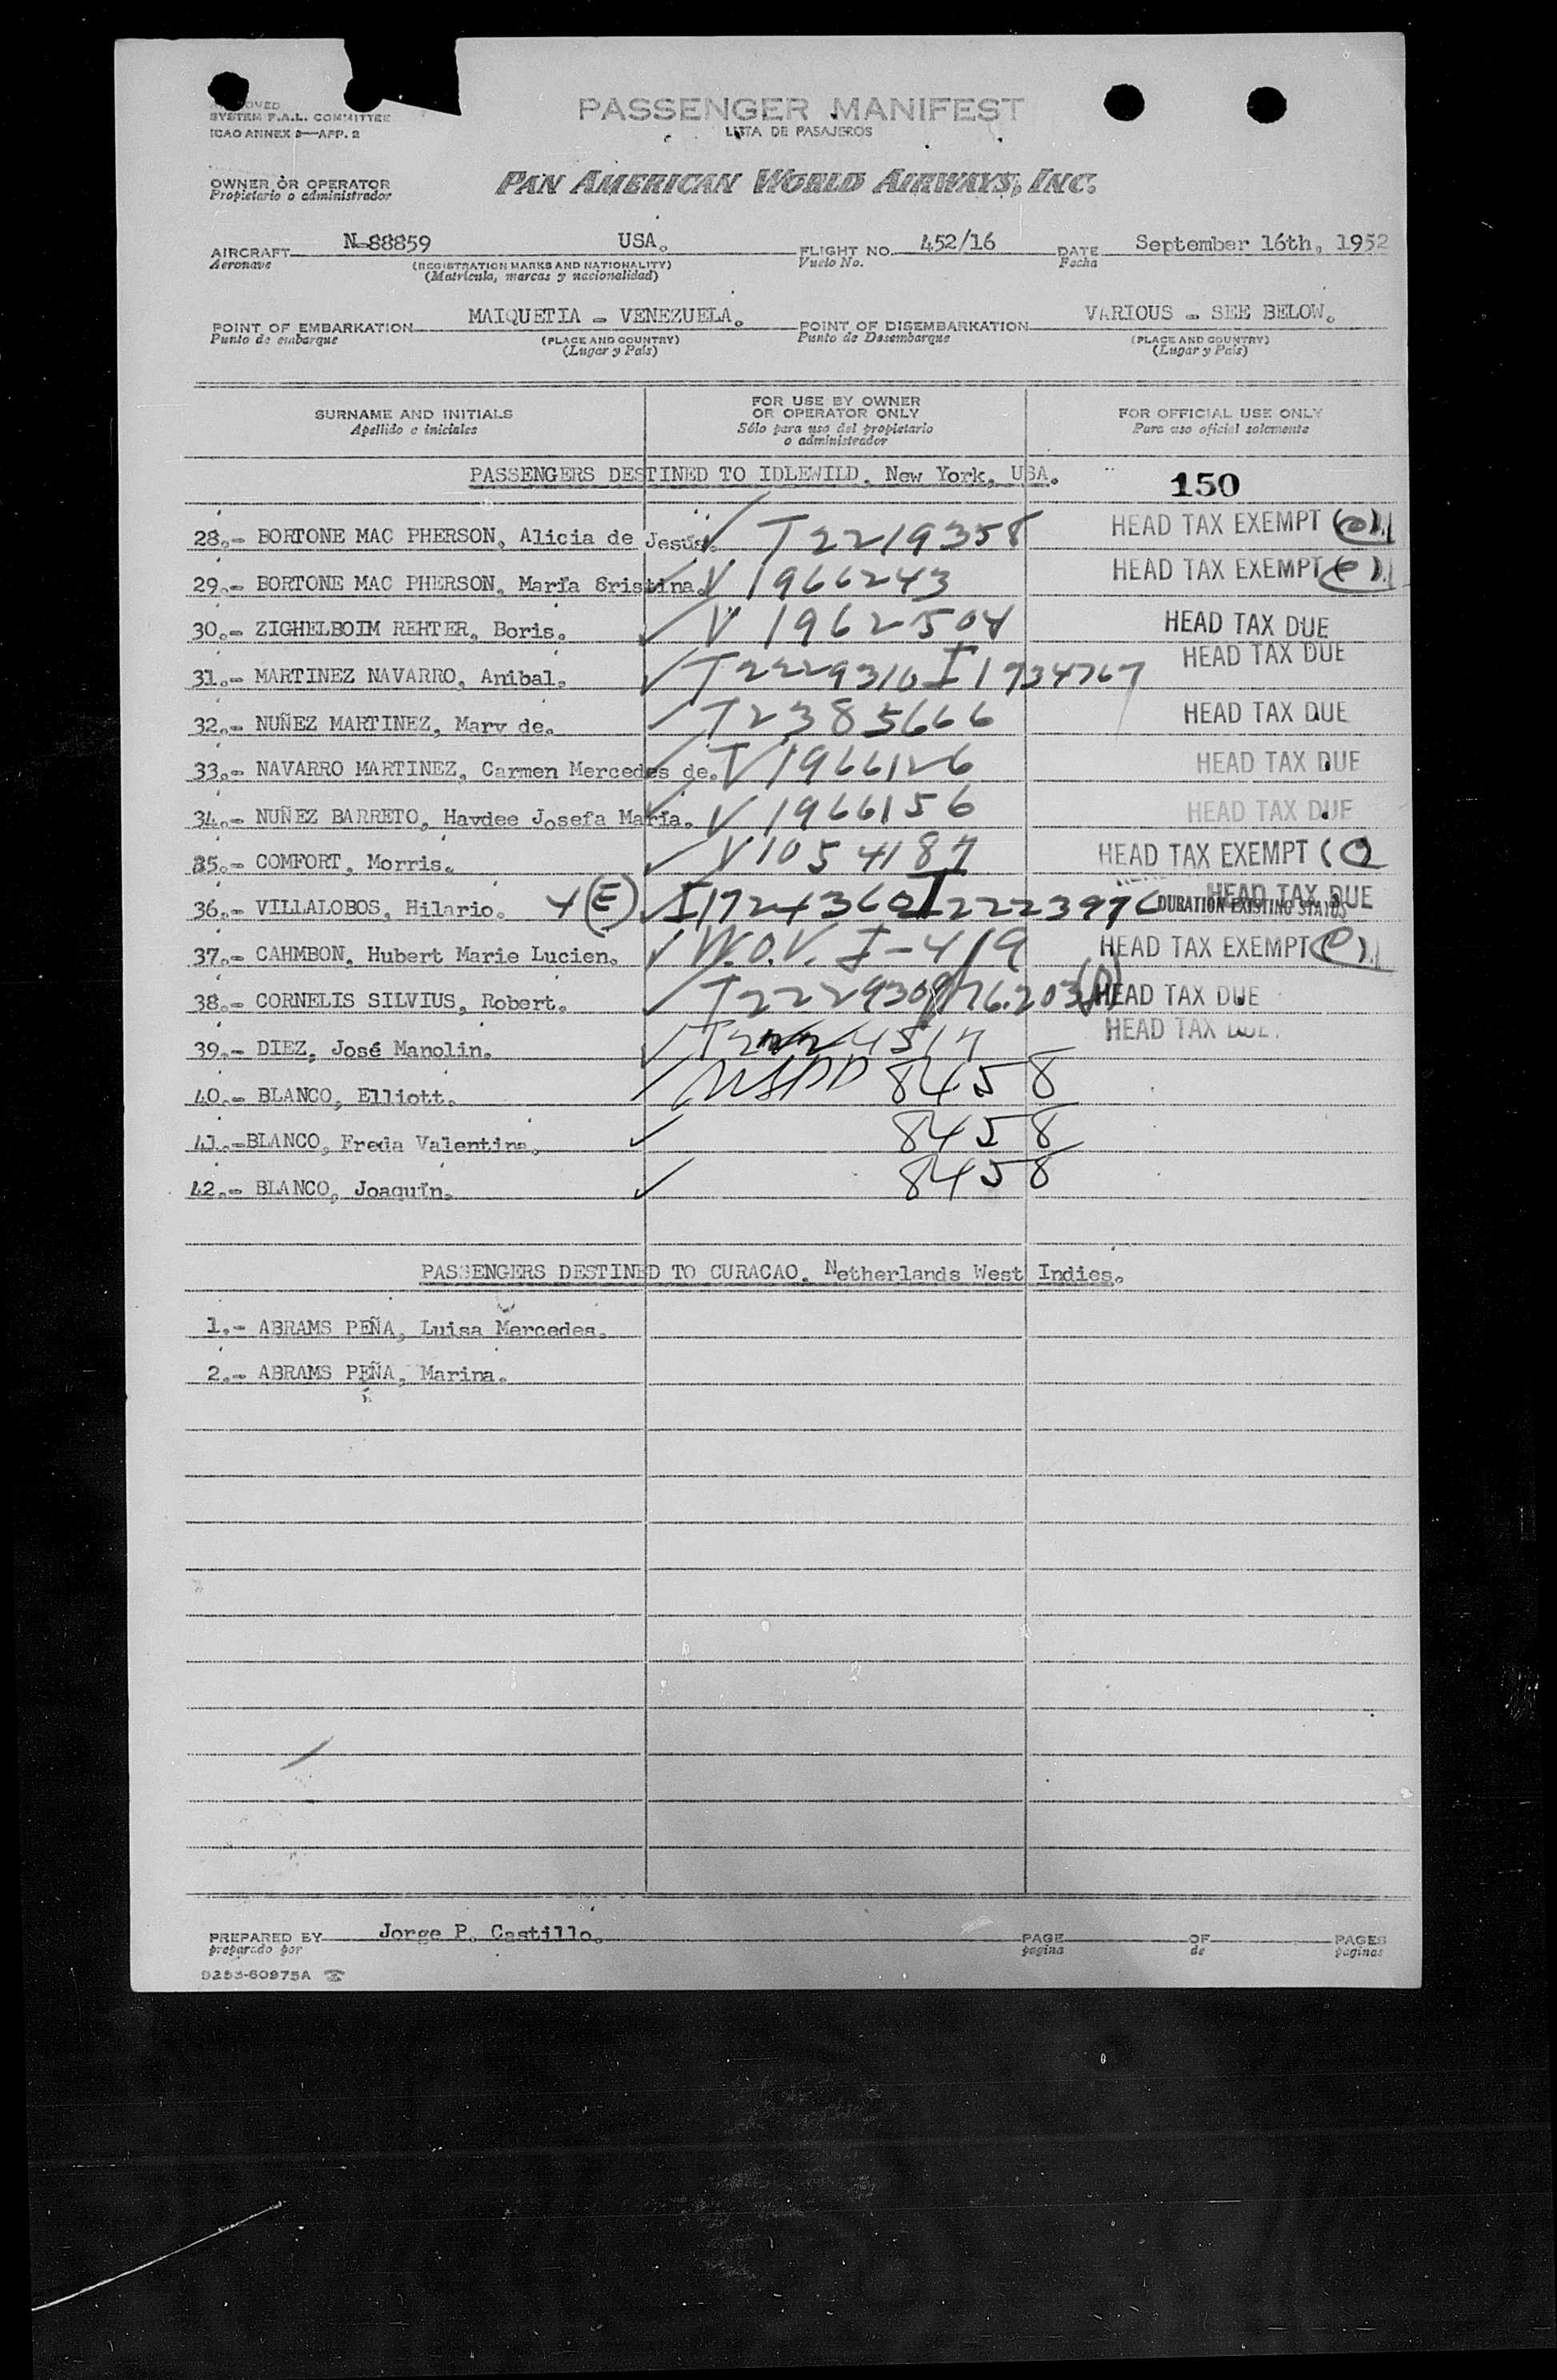 APPROVED
SYSTEM F.A.L. COMMITTEE
ICAO ANNEX 9—APP. 2
PASSENGER MANIFEST
LISTA DE PASAJEROS
OWNER OR OPERATOR
Propietario o administrador
PAN AMERICAN WORLD AIRWAYS, INC.
AIRCRAFT N-88859 USA. FLIGHT NO. 452/16 DATE September 16th, 1952
Aeronave (REGISTRATION MARKS AND NATIONALITY) Vuelo No. Fecha
(Matrícula, marcas y nacionalidad)
POINT OF EMBARKATION MAIQUETIA - VENEZUELA. POINT OF DISEMBARKATION VARIOUS - SEE BELOW.
Punto de embarque (PLACE AND COUNTRY) Punto de Desembarque (PLACE AND COUNTRY)
(Lugar y País) (Lugar y País)
SURNAME AND INITIALS
Apellido e iniciales
FOR USE BY OWNER
OR OPERATOR ONLY
Sólo para uso del propietario
o administrador
FOR OFFICIAL USE ONLY
Para uso oficial solamente
PASSENGERS DESTINED TO IDLEWILD, New York, USA. 150
28.- BORTONE MAC PHERSON, Alicia de Jesús. T2219358 HEAD TAX EXEMPT (e)
29.- BORTONE MAC PHERSON, María Cristina. V 1966243 HEAD TAX EXEMPT (e)
30.- ZIGHELBOIM REHTER, Boris. V 1962504 HEAD TAX DUE
31.- MARTINEZ NAVARRO, Anibal. T2229310 I1734767 HEAD TAX DUE
32.- NUÑEZ MARTINEZ, Mary de. T2385666 HEAD TAX DUE
33.- NAVARRO MARTINEZ, Carmen Mercedes de. V 1966126 HEAD TAX DUE
34.- NUÑEZ BARRETO, Haydee Josefa María. V 1966156 HEAD TAX DUE
35.- COMFORT, Morris. V1054187 HEAD TAX EXEMPT
36.- VILLALOBOS, Hilario. (E) I1724360 T2223976 HEAD TAX DUE
DURATION EXISTING STATUS
37.- CAHMBON, Hubert Marie Lucien. W.O.V. I-419 HEAD TAX EXEMPT (e)
38.- CORNELIS SILVIUS, Robert. T2229309 HEAD TAX DUE
39.- DIEZ, José Manolin. HEAD TAX DUE.
40.- BLANCO, Elliott. 8458
41.-BLANCO, Freda Valentina. 8458
42.- BLANCO, Joaquín. 8458
PASSENGERS DESTINED TO CURACAO, Netherlands West Indies.
1.- ABRAMS PEÑA, Luisa Mercedes.
2.- ABRAMS PEÑA, Marina.
PREPARED BY Jorge P. Castillo. PAGE OF PAGES
preparado por página de páginas
9253-60975A